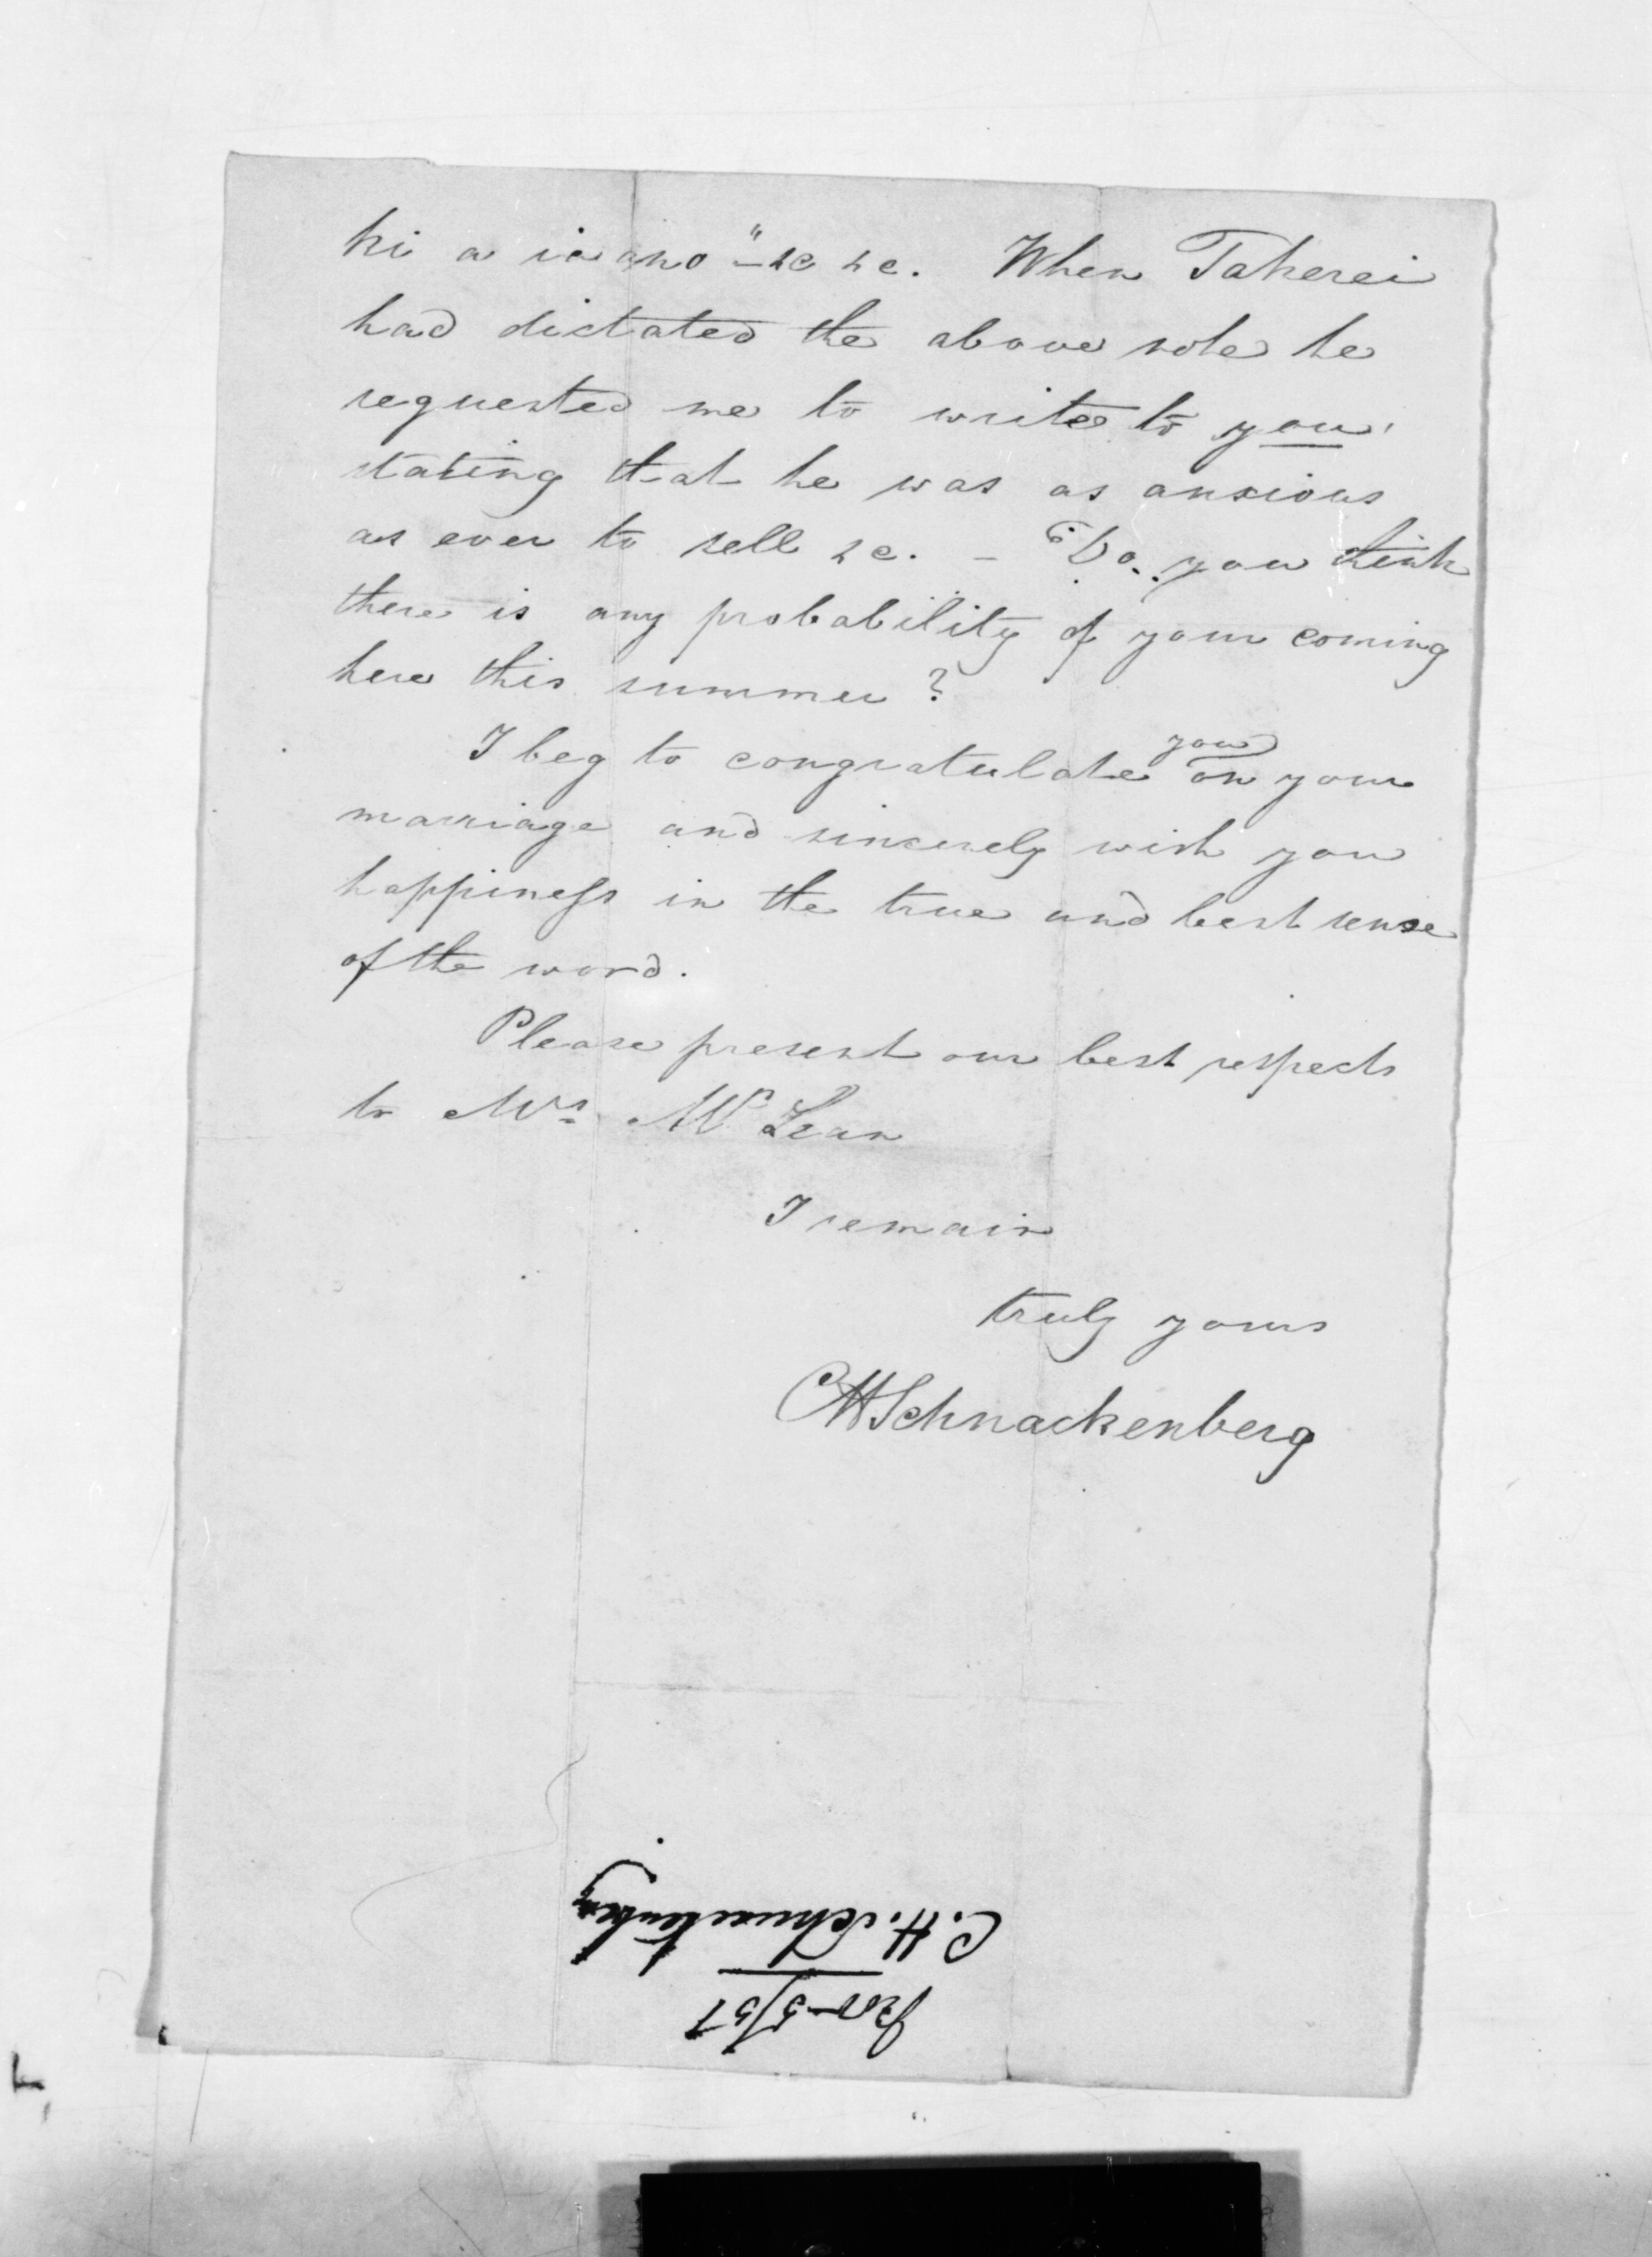 ki a ia ano" - &c &c. When Takerei
had dictated the above note he
requested me to write to you,
stating that he was as anxious
as ever to sell &c. - Do you think
there is any probability of your coming
here this summer?
I beg to congratulate you on your
marriage and sincerely wish you
happiness in the true and best sense
of the word.
Please present our best respects
to Mrs. McLean
I remain
truly yours
CHSchnackenberg
Nov 5/51
C.H. Schnackenberg